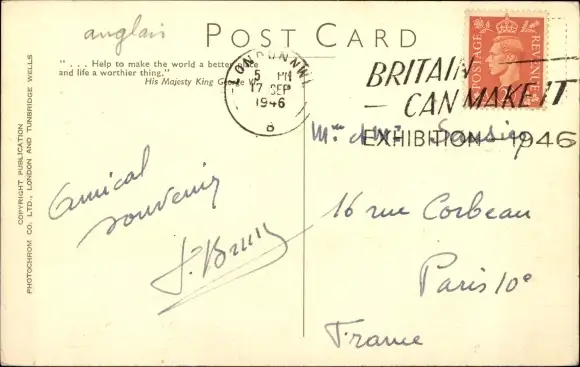 anglais
POST CARD
". . . Help to make the world a better place
and life a worthier thing."
His Majesty King George VI.
POSTAGE REVENUE
LONDON N.W.1
5 PM
17 SEP
1946
8
BRITAIN
CAN MAKE IT
EXHIBITION 1946
COPYRIGHT PUBLICATION
PHOTOCHROM CO. LTD., LONDON AND TUNBRIDGE WELLS
Amical
souvenir
16 rue Corbeau
Paris 10e
France